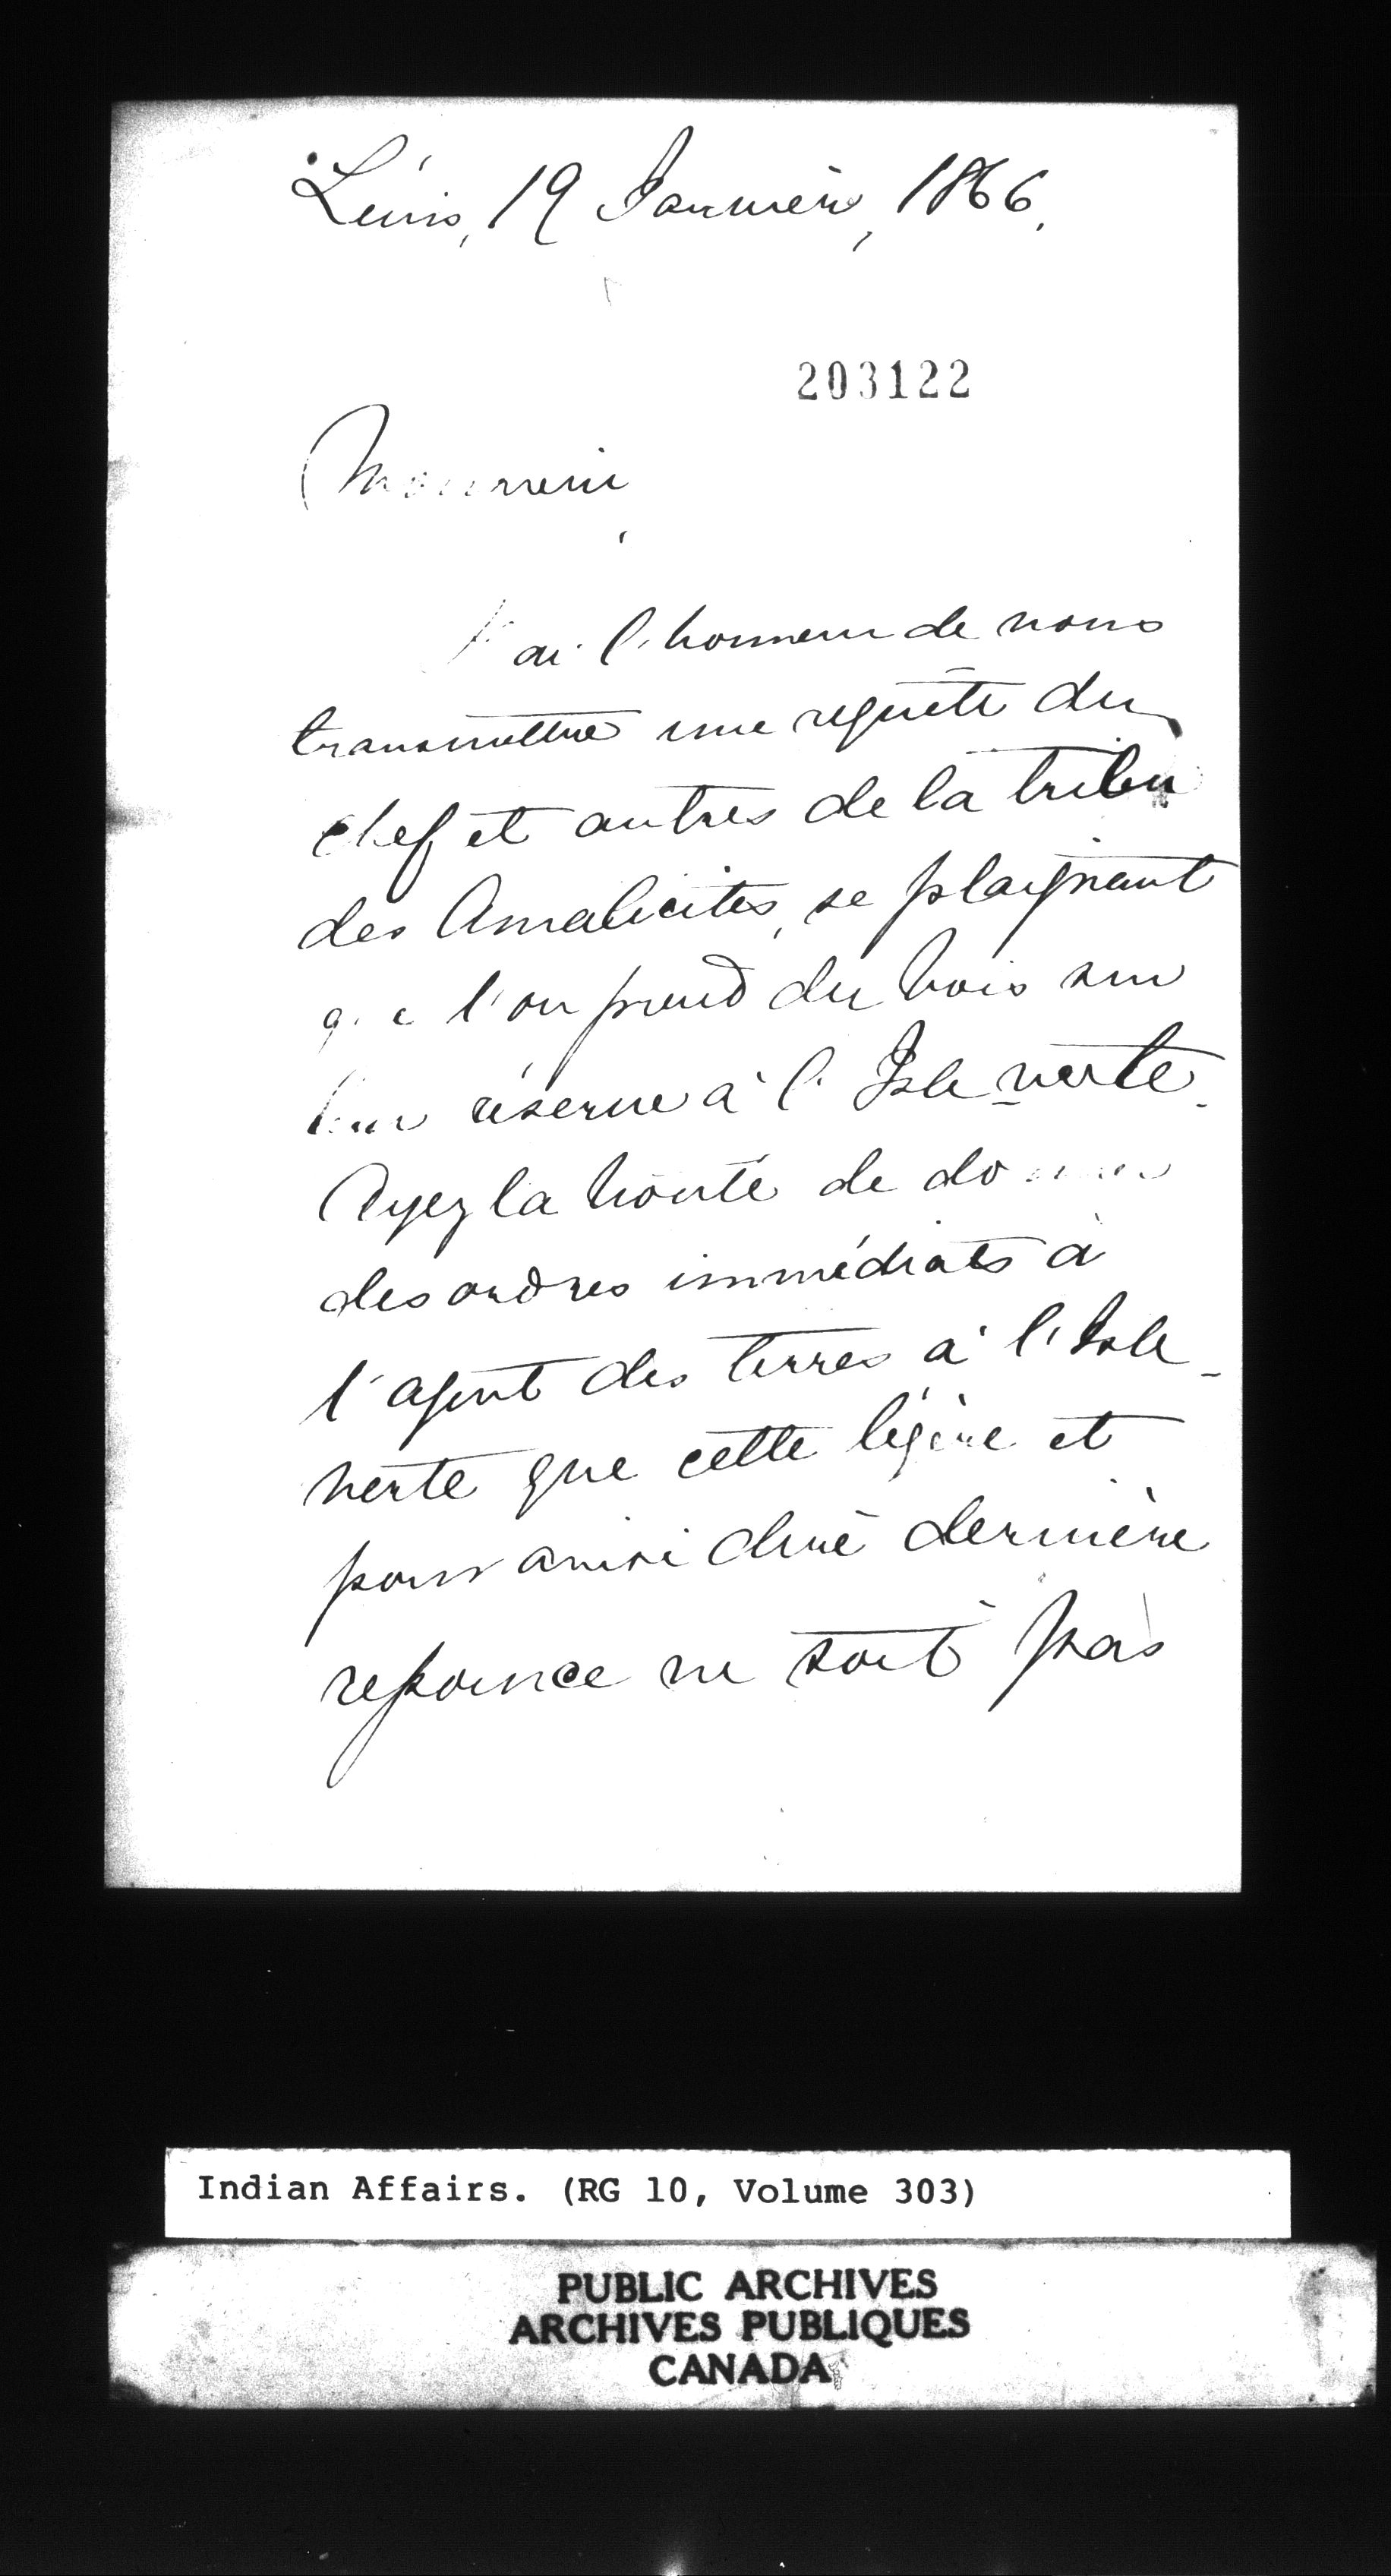 Lévis, 19 Janvier, 1866.
203122
Monsieur,
J'ai l'honneur de vous
transmettre une requête du
chef et autres de la tribu
des Amalicites, se plaignant
que l'on prend du bois sur
leur réserve à l'Isle verte.
Ayez la bonté de donner
des ordres immédiats à
l'agent des terres à l'Isle-
verte que cette légère et
pour ainsi dire dernière
ressource ne soit pas
Indian Affairs. (RG 10, Volume 303)
PUBLIC ARCHIVES
ARCHIVES PUBLIQUES
CANADA